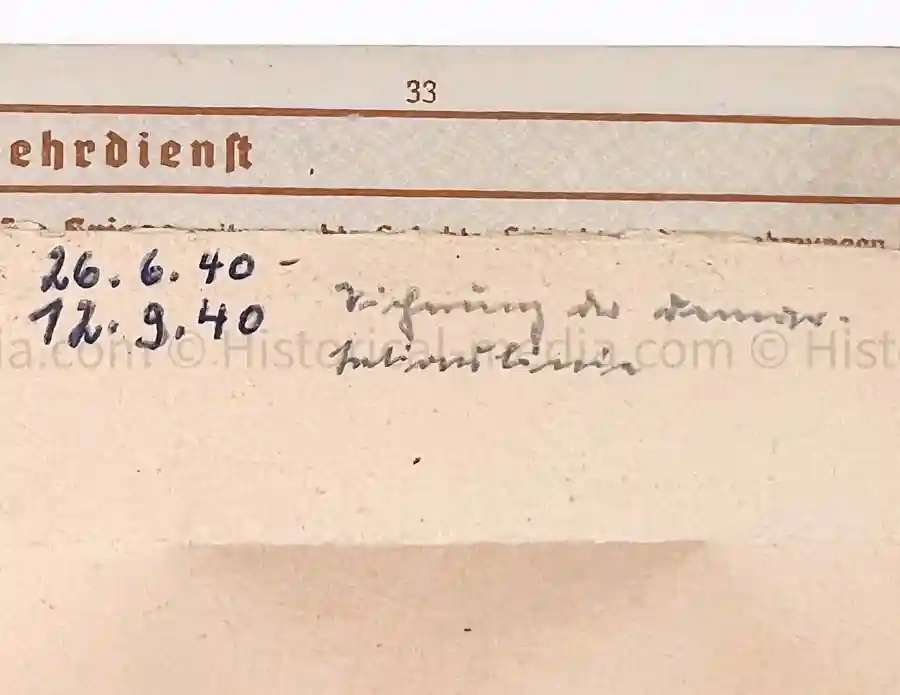 33
ehrdienst
26. 6. 40 -
12. 9. 40
Sicherung der Demar-
kationslinie
© Historical-media.com © Histo